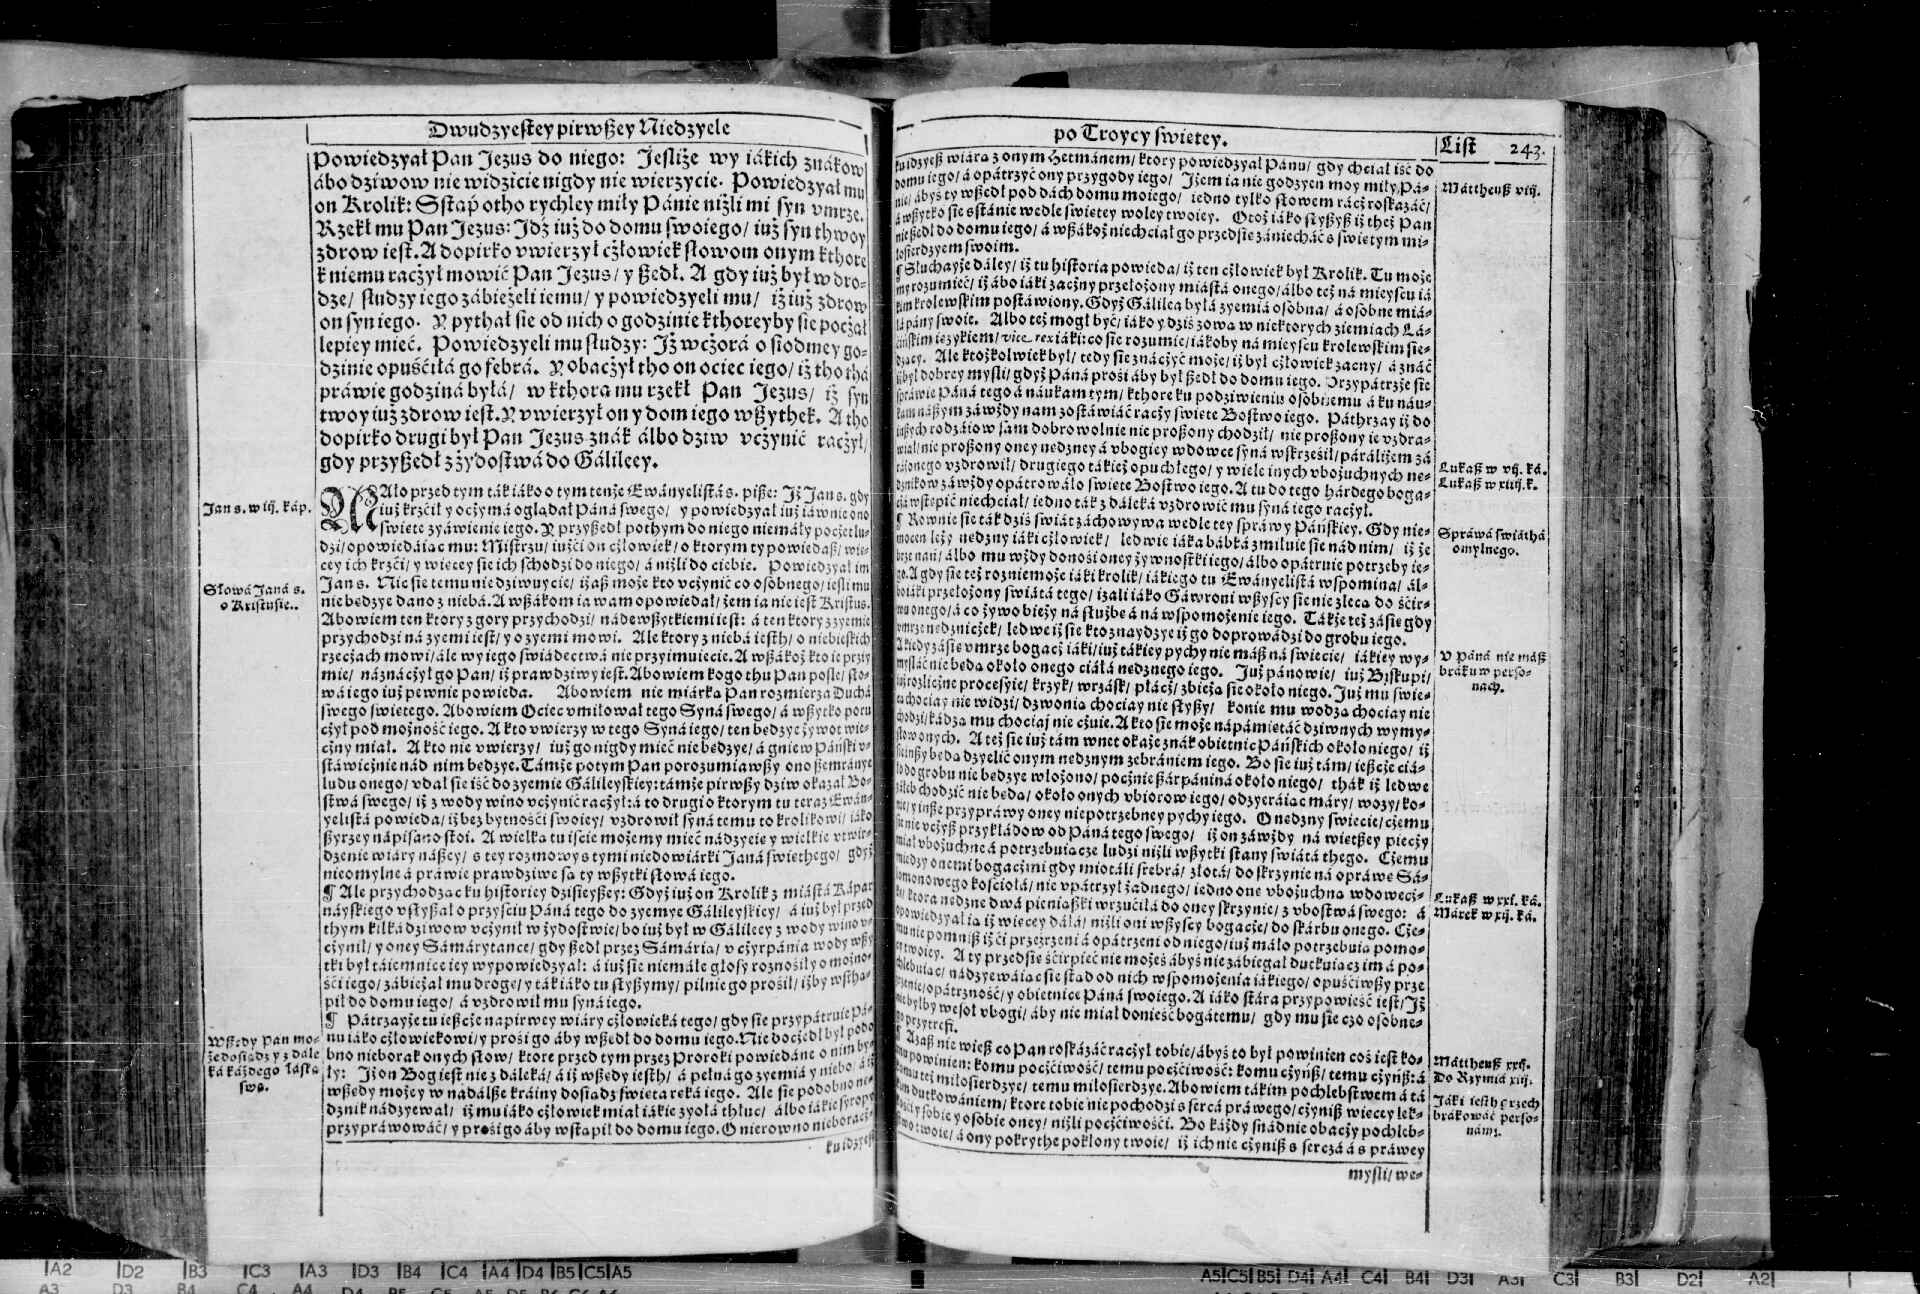 Dwudzyestey pirwßey Niedzyele
Powiedzyał Pan Jezus do niego: Jesliże wy iákich znákow
ábo dziwow nie widzicie nigdy nie wierzycie. Powiedzyał mu
on Krolik: Sstąp otho rychley miły Pánie niżli mi syn vmrze.
Rzekł mu Pan Jezus: Jdź iuż do domu swoiego/ iuż syn thwoy
zdrow iest. A dopirko vwierzył cżłowiek słowom onym kthore
k niemu racżył mowić Pan Jezus/ y ßedł. A gdy iuż był w dro-
dze/ słudzy iego zábieżeli iemu/ y powiedzyeli mu/ iż iuż zdrow
on syn iego. Y pythał sie od nich o godzinie kthoreyby sie pocżął
lepiey mieć. Powiedzyeli mu słudzy: Jż wcżorá o siodmey go-
dzinie opuściłá go febrá. Y obacżył tho on ociec iego/ iż tho thá
práwie godziná byłá/ w kthorą mu rzekł Pan Jezus/ iż syn
twoy iuż zdrow iest. Y vwierzył on y dom iego wßythek. A tho
dopirko drugi był Pan Jezus znák álbo dziw vcżynić racżył/
gdy przyßedł z żydostwá do Gálileey.
Jan s. w iij. káp.
MAło przed tym ták iáko o tym tenże Ewányelistá s. piße: Jż Jan s. gdy
iuż krzcił y ocżymá oglądał Páná swego/ y powiedzyał iuż iáwnie ono
święte zyáwienie iego. Y przyßedł pothym do niego niemáły pocżet lu-
dzi/ opowiedáiąc mu: Mistrzu/ iużci on cżłowiek/ o ktorym ty powiedaß/ wie-
cey ich krzci/ y więcey sie ich schodzi do niego/ á niżli do ciebie. Powiedzyał im
Słowá Janá s.
o Kristusie..
Jan s. Nie sie temu nie dziwuycie/ iżaß może kto vcżynić co osobnego/ iesli mu
nie będzye dano z niebá. A wßákom ia wam opowiedał/ żem ia nie iest Kristus.
Abowiem ten ktory z gory przychodzi/ náde wßytkiemi iest: á ten ktory z zyemie
przychodzi ná zyemi iest/ y o zyemi mowi. Ale ktory z niebá iesth/ o niebieskich
rzecżach mowi/ ále wy iego świádectwá nie przyimuiecie. A wßákoż kto ie przy-
mie/ náznácżył go Pan/ iż prawdziwy iest. Abowiem kogo thu Pan posle/ sło-
wá iego iuż pewnie powieda. Abowiem nie miárką Pan rozmierza Duchá
swego świętego. Abowiem Ociec vmiłował tego Syná swego/ á wßytko poru
cżył pod możność iego. A kto vwierzy w tego Syná iego/ ten będzye żywot wie-
cżny miał. A kto nie vwierzy/ iuż go nigdy mieć nie będzye/ á gniew Páński v-
stáwicżnie nád nim będzye. Támże potym Pan porozumiawßy ono ßemránye
ludu onego/ vdał sie iść do zyemie Gálileyskiey: támże pirwßy dziw okazał Bo-
stwá swego/ iż z wody wino vcżynić racżył: á to drugi o ktorym tu teraz Ewán-
yelistá powieda/ iż bez bytności swoiey/ vzdrowił syná temu to krolikowi/ iáko
ßyrzey nápisano stoi. A wielką tu iście możemy mieć nádzyeię y wielkie vtwir-
dzenie wiáry náßey/ s tey rozmowy s tymi niedowiárki Janá świethego/ gdyż
nieomylne á práwie prawdziwe są ty wßytki słowá iego.
¶ Ale przychodząc ku historiey dzisieyßey: Gdyż iuż on Krolik z miástá Káphar
náyskiego vsłyßał o przyściu Páná tego do zyemye Gálileyskiey/ á iuż był przed
thym kilká dziwow vcżynił w żydostwie/ bo iuż był w Gálileey z wody wino v-
cżynił/ y oney Sámárytance/ gdy ßedł przez Sámárią/ v cżyrpánia wody wßy
tki był táiemnice iey wypowiedzyał: á iuż sie niemáłe głosy roznosiły o możno-
ści iego/ zábieżał mu drogę/ y ták iáko tu słyßymy/ pilnie go prosił/ iżby wstha-
pił do domu iego/ á vzdrowił mu syná iego.
Wßędy Pan mo-
że dosiądz y z dale
ká káżdego łáską
swą.
¶ Pátrzayże tu ießcże napirwey wiáry cżłowieká tego/ gdy sie przypátruie Pá-
nu iáko cżłowiekowi/ y prosi go áby wßedł do domu iego. Nie docżedł był podo
bno nieborak onych słow/ ktore przed tym przez Proroki powiedáne o nim by-
ły: Jż on Bog iest nie z dáleká/ á iż wßędy iesth/ á pełná go zyemiá y niebo/ á iż
wßędy możey w nadálße kráiny dosiądz święta ręká iego. Ale sie podobno nę-
dznik nádzyewał/ iż mu iáko cżłowiek miał iákie zyołá thłuc/ álbo iákie syropy
przypráwowáć/ y prosi go áby wstąpił do domu iego. O nierowno nieboracż-
ku idzyeß
po Troycy świętey.
List 243.
ku idzyeß wiárą z onym Hetmánem/ ktory powiedzyał Pánu/ gdy chciał iść do
domu iego/ á opátrzyć ony przygody iego/ Jżem ia nie godzyen moy miły Pá-
nie/ ábyś ty wßedł pod dách domu moiego/ iedno tylko słowem rácż roskázáć/
á wßytko sie ostánie wedle świętey woley twoiey. Otoż iáko słyßyß iż theż Pan
nie ßedł do domu iego/ á wßákoż niechciał go przedsię zániecháć s świętym mi-
łosierdzyem swoim.
Mattheuß viij.
¶ Słuchayże dáley/ iż tu historia powieda/ iż ten cżłowiek był Krolik. Tu może
my rozumieć/ iż ábo iáki zacżny przełożony miástá onego/ álbo też ná mieyscu iá
kim krolewskim postáwiony. Gdyż Gálilea byłá zyemiá osobna/ á osobne miá-
łá pány swoie. Albo też mogł być/ iáko y dziś zową w niektorych ziemiach Łá-
cińskim ięzykiem/ vice rex iáki: co sie rozumie/ iákoby ná mieyscu krolewskim sie-
dzący. Ale ktożkolwiek był/ tedy sie znácżyć może/ iż był cżłowiek zacny/ á znáć
iż był dobrey mysli/ gdyż Páná prosi áby był ßedł do domu iego. Przypátrzże sie
spráwie Páná tego á náukam tym/ kthore ku podziwieniu osobnemu á ku náu-
kam náßym záwżdy nam zostáwiáć racży święte Bostwo iego. Páthrzay iż do
inßych rodzáiow sam dobrowolnie nie proßony chodził/ nie proßony ie vzdra-
wiał/ nie proßony oney nędzney á vbogiey wdowce syná wskrzesił/ páráliżem zá
ráżonego vzdrowił/ drugiego tákież opuchłego/ y wiele inych vbożuchnych nę-
dznikow záwżdy opátrowáło święte Bostwo iego. A tu do tego hárdego bogá-
cżá wstąpić niechciał/ iedno ták z dáleká vzdrowić mu syná iego racżył.
Łukaß w vij. ká.
Łukaß w xiiij. k.
¶ Rownie sie ták dziś świát záchowywa wedle tey spráwy Páńskiey. Gdy nie-
mocen leży nędzny iáki cżłowiek/ ledwie iáka bábká zmiłuie sie nád nim/ iż źe
brze nań/ álbo mu wżdy donosi oney żywnostki iego/ álbo opátruie potrzeby ie-
go. A gdy sie też rozniemoże iáki krolik/ iákiego tu Ewányelistá wspomina/ ál-
bo iáki przełożony świátá tego/ izali iáko Gáwroni wßyscy sie nie zlecą do ścir-
wu onego/ á co żywo bieży ná służbę á ná wspomożenie iego. Tákże też zásię gdy
vmrze nędznicżek/ ledwe iż sie kto znaydzye iż go doprowádzi do grobu iego.
Spráwá świáthá
omylnego.
A kiedy zásię vmrze bogacż iáki/ iuż tákiey pychy nie máß ná świecie/ iákiey wy-
mysláć nie będą około onego ciáłá nędznego iego. Już pánowie/ iuż Biskupi/
iuż rozlicżne procesyie/ krzyk/ wrzásk/ płácż/ zbieżą sie około niego. Już mu świe-
cą chociay nie widzi/ dzwonią chociay nie słyßy/ konie mu wodzą chociay nie
chodzi/ kádzą mu chociaj nie cżuie. A kto sie może nápámiętáć dziwnych wymy-
słow onych. A też sie iuż tám wnet okaże znák obietnic Páńskich około niego/ iż
sie inßy będą dzyelić onym nędznym zebrániem iego. Bo sie iuż tám/ ießcże ciá-
ło do grobu nie będzye włożono/ pocżnie ßárpániná około niego/ thák iż ledwe
z łeb chodzić nie będą/ około onych vbiorow iego/ odzyeráiąc máry/ wozy/ ko-
nie/ y inße przypráwy oney niepotrzebney pychy iego. O nędzny świecie/ cżemu
sie nie vcżyß przykłádow od Páná tego swego/ iż on záwżdy ná więtßey pieczy
miał vbożuchne á potrzebuiące ludzi niżli wßytki stany świátá thego. Cżemu
miedzy onemi bogacżmi gdy miotáli srebrá/ złotá/ do skrzynie ná opráwę Sá-
lomonowego kościołá/ nie vpátrzył żadnego/ iedno onę vbożuchną wdowecż-
kę/ ktora nędzne dwá pieniąßki wrzućiłá do oney skrzynie/ z vbostwá swego: á
opowiedzyał ią iż więcey dáłá/ niżli oni wßyscy bogacże/ do skárbu onego. Cże-
mu nie pomniß iżci przeźrzeni á opátrzeni od niego/ iuż máło potrzebuią pomo-
cy twoiey. A ty przedsię ścirpieć nie możeß ábyś nie zábiegał dutkuiącż im á po-
chlebuiąc/ nádzyewáiąc sie stąd od nich wspomożenia iákiego/ opuściwßy prze
źrzenie/ opátrzność/ y obietnice Páná swoiego. A iáko stára przypowieść iest/ Jż
nie byłby wesoł vbogi/ áby nie miał donieść bogátemu/ gdy mu sie czo osobne-
go przytrefi.
V Páná nie máß
bráku w perso-
nach.
Łukaß w xxi. ká.
Márek w xij. ká.
¶ Azaß nie wieß co Pan roskázáć racżył tobie/ ábyś to był powinien coś iest ko-
mu powinien: komu pocżciwość/ temu pocżciwość: komu cżynß/ temu cżynß: á
komu też miłosierdzye/ temu miłosierdzye. Abowiem tákim pochlebstwem á tá
kim dutkowániem/ ktore tobie nie pochodzi s sercá práwego/ cżyniß więcey lek-
kości y sobie y osobie oney/ niżli pocżciwości. Bo káżdy snádnie obacży pochleb-
stwo twoie/ á ony pokrythe pokłony twoie/ iż ich nie cżyniß s serczá á s práwey
Mattheuß xxij.
Do Rzymian xiij.
Jáki iesth grzech
brákowáć perso-
námi.
mysli/ we-